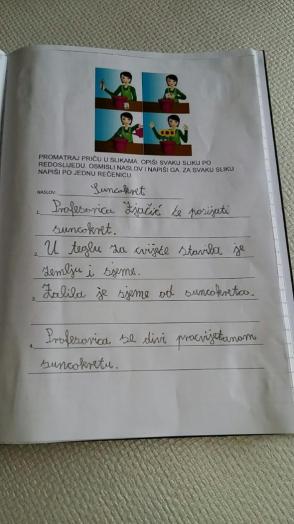 PROMATRAJ PRIČU U SLIKAMA. OPIŠI SVAKU SLIKU PO
REDOSLIJEDU. OSMISLI NASLOV I NAPIŠI GA. ZA SVAKU SLIKU
NAPIŠI PO JEDNU REČENICU.
NASLOV: Suncokret
1. Profesorica Zjačić će posijati
suncokret.
2. U teglu za cvijeće stavila je
zemlju i sjeme.
3. Zalila je sjeme od suncokreta.
4. Profesorica se divi procvjetanom
suncokretu.